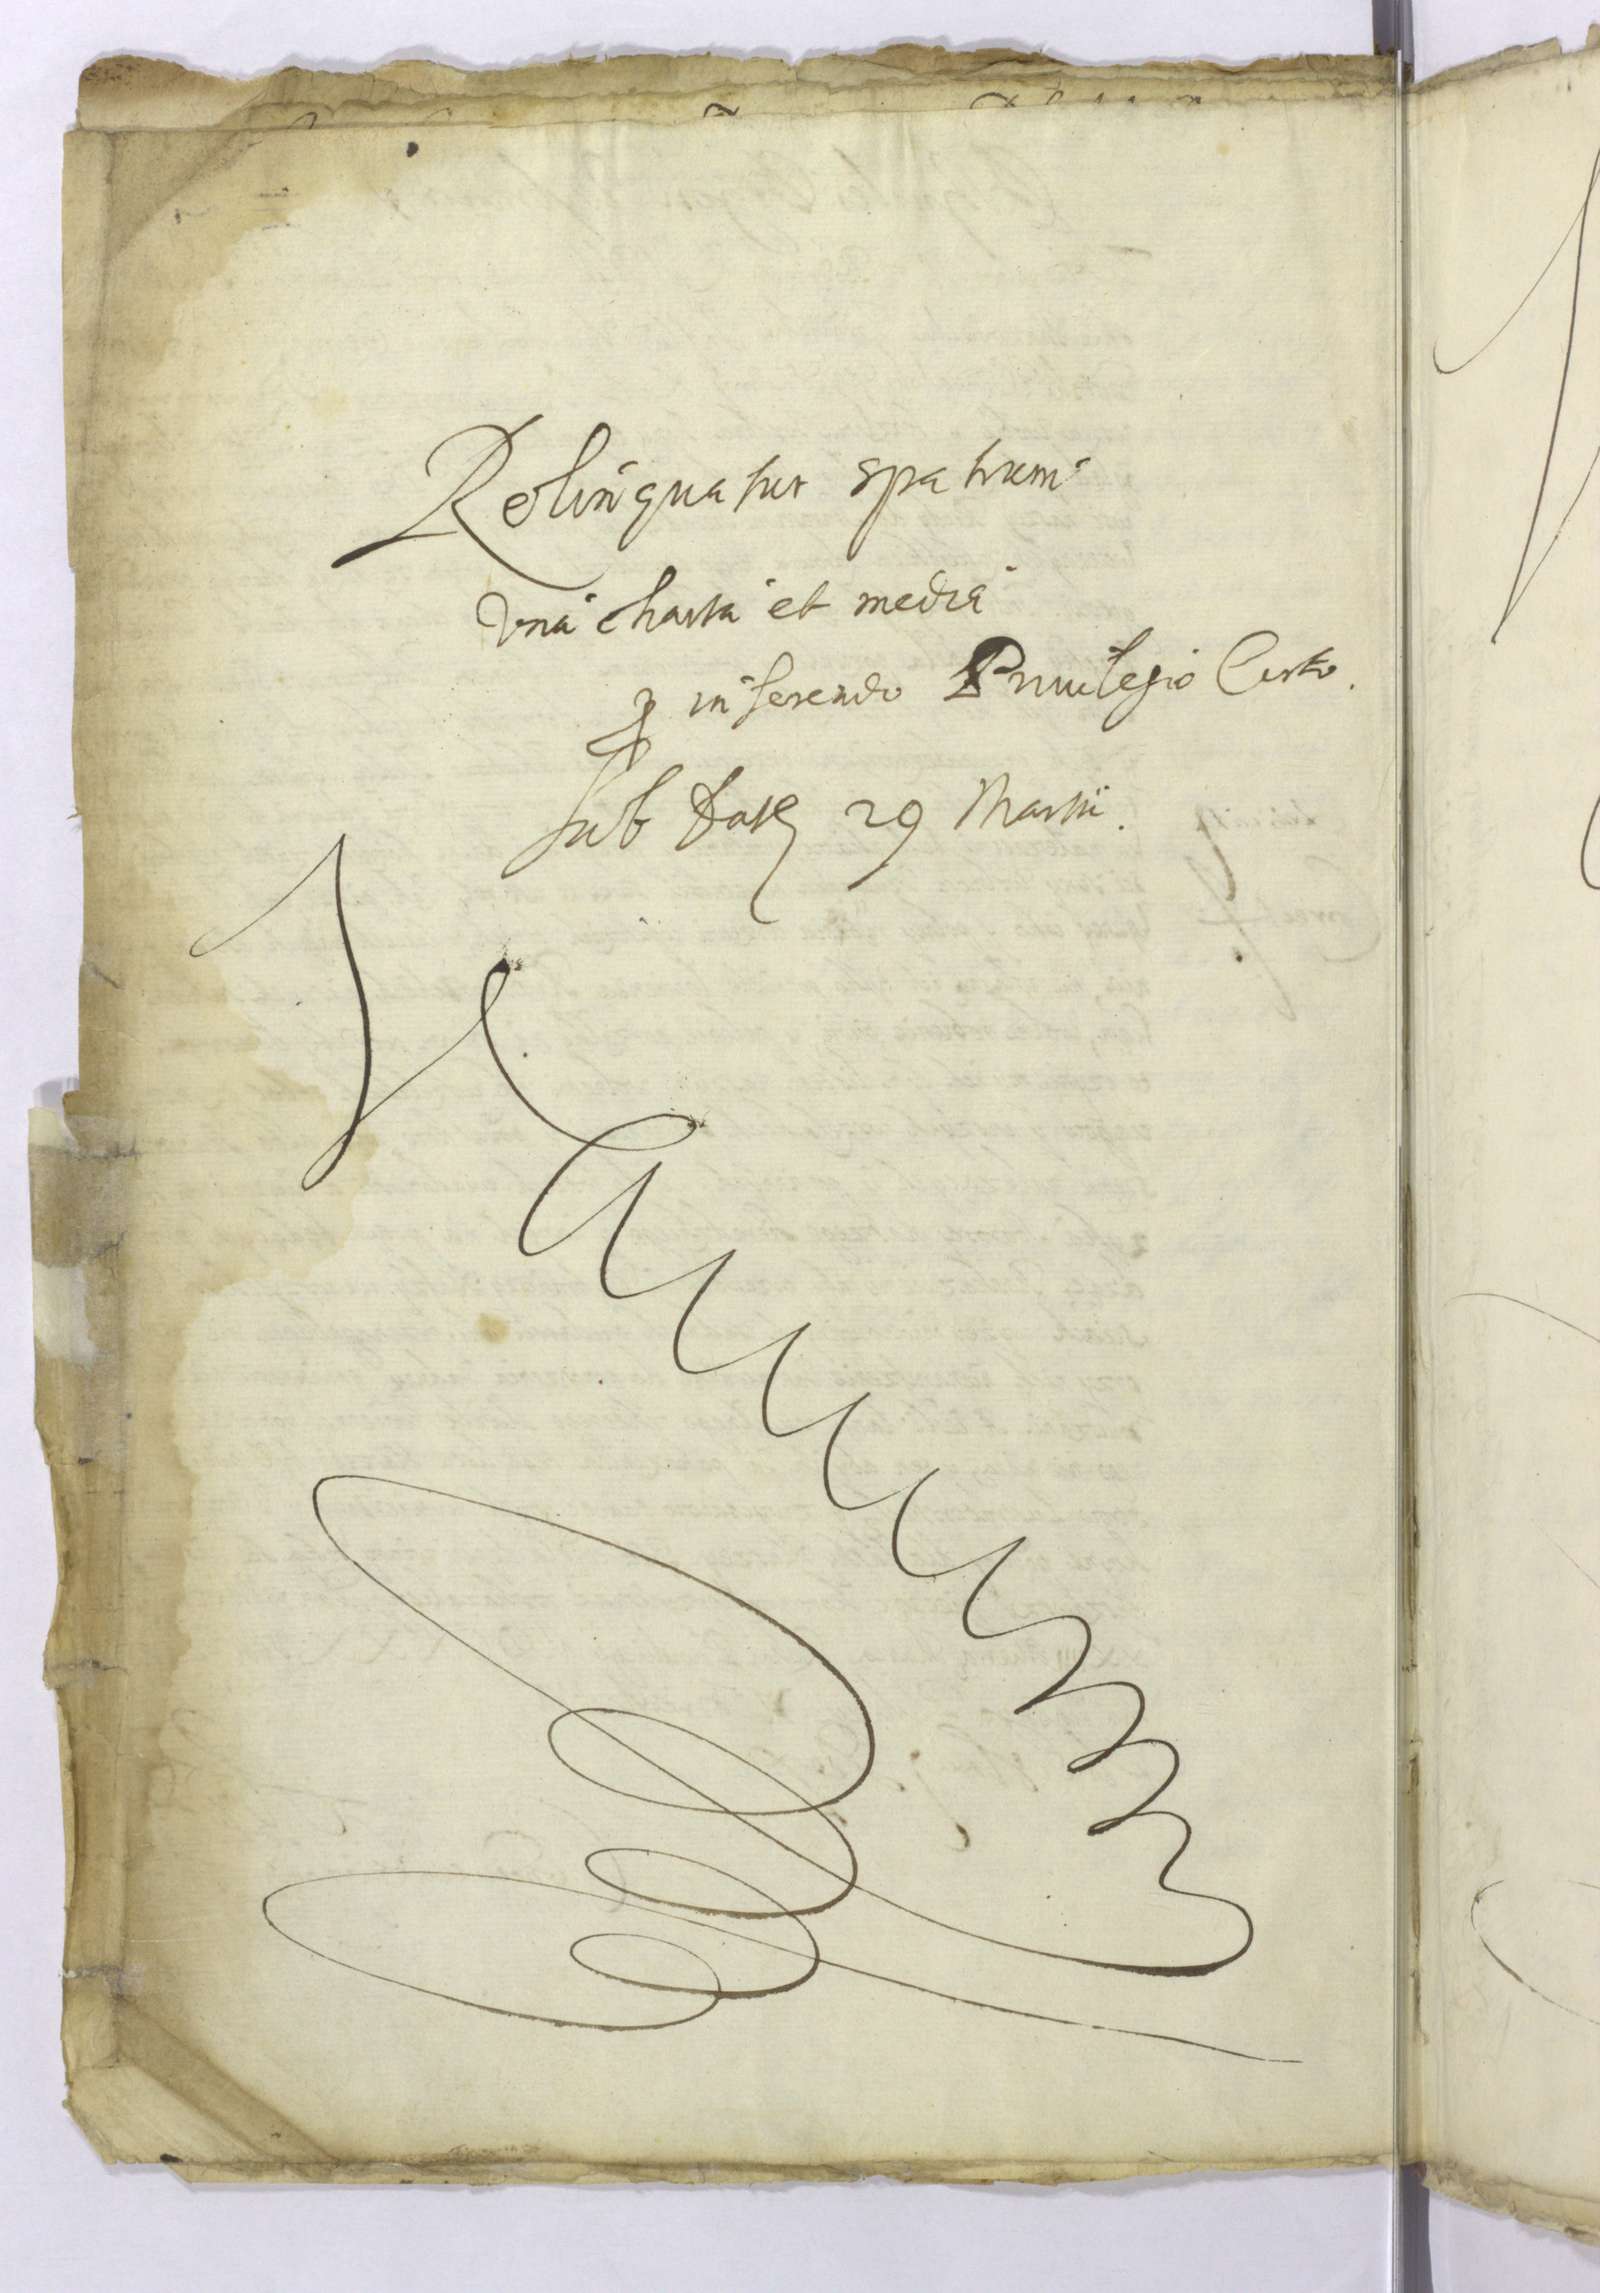 Relinquatur spatium
Vna charta et media
inserendo Priuilegio Certo.
sub Data 29 Martii.